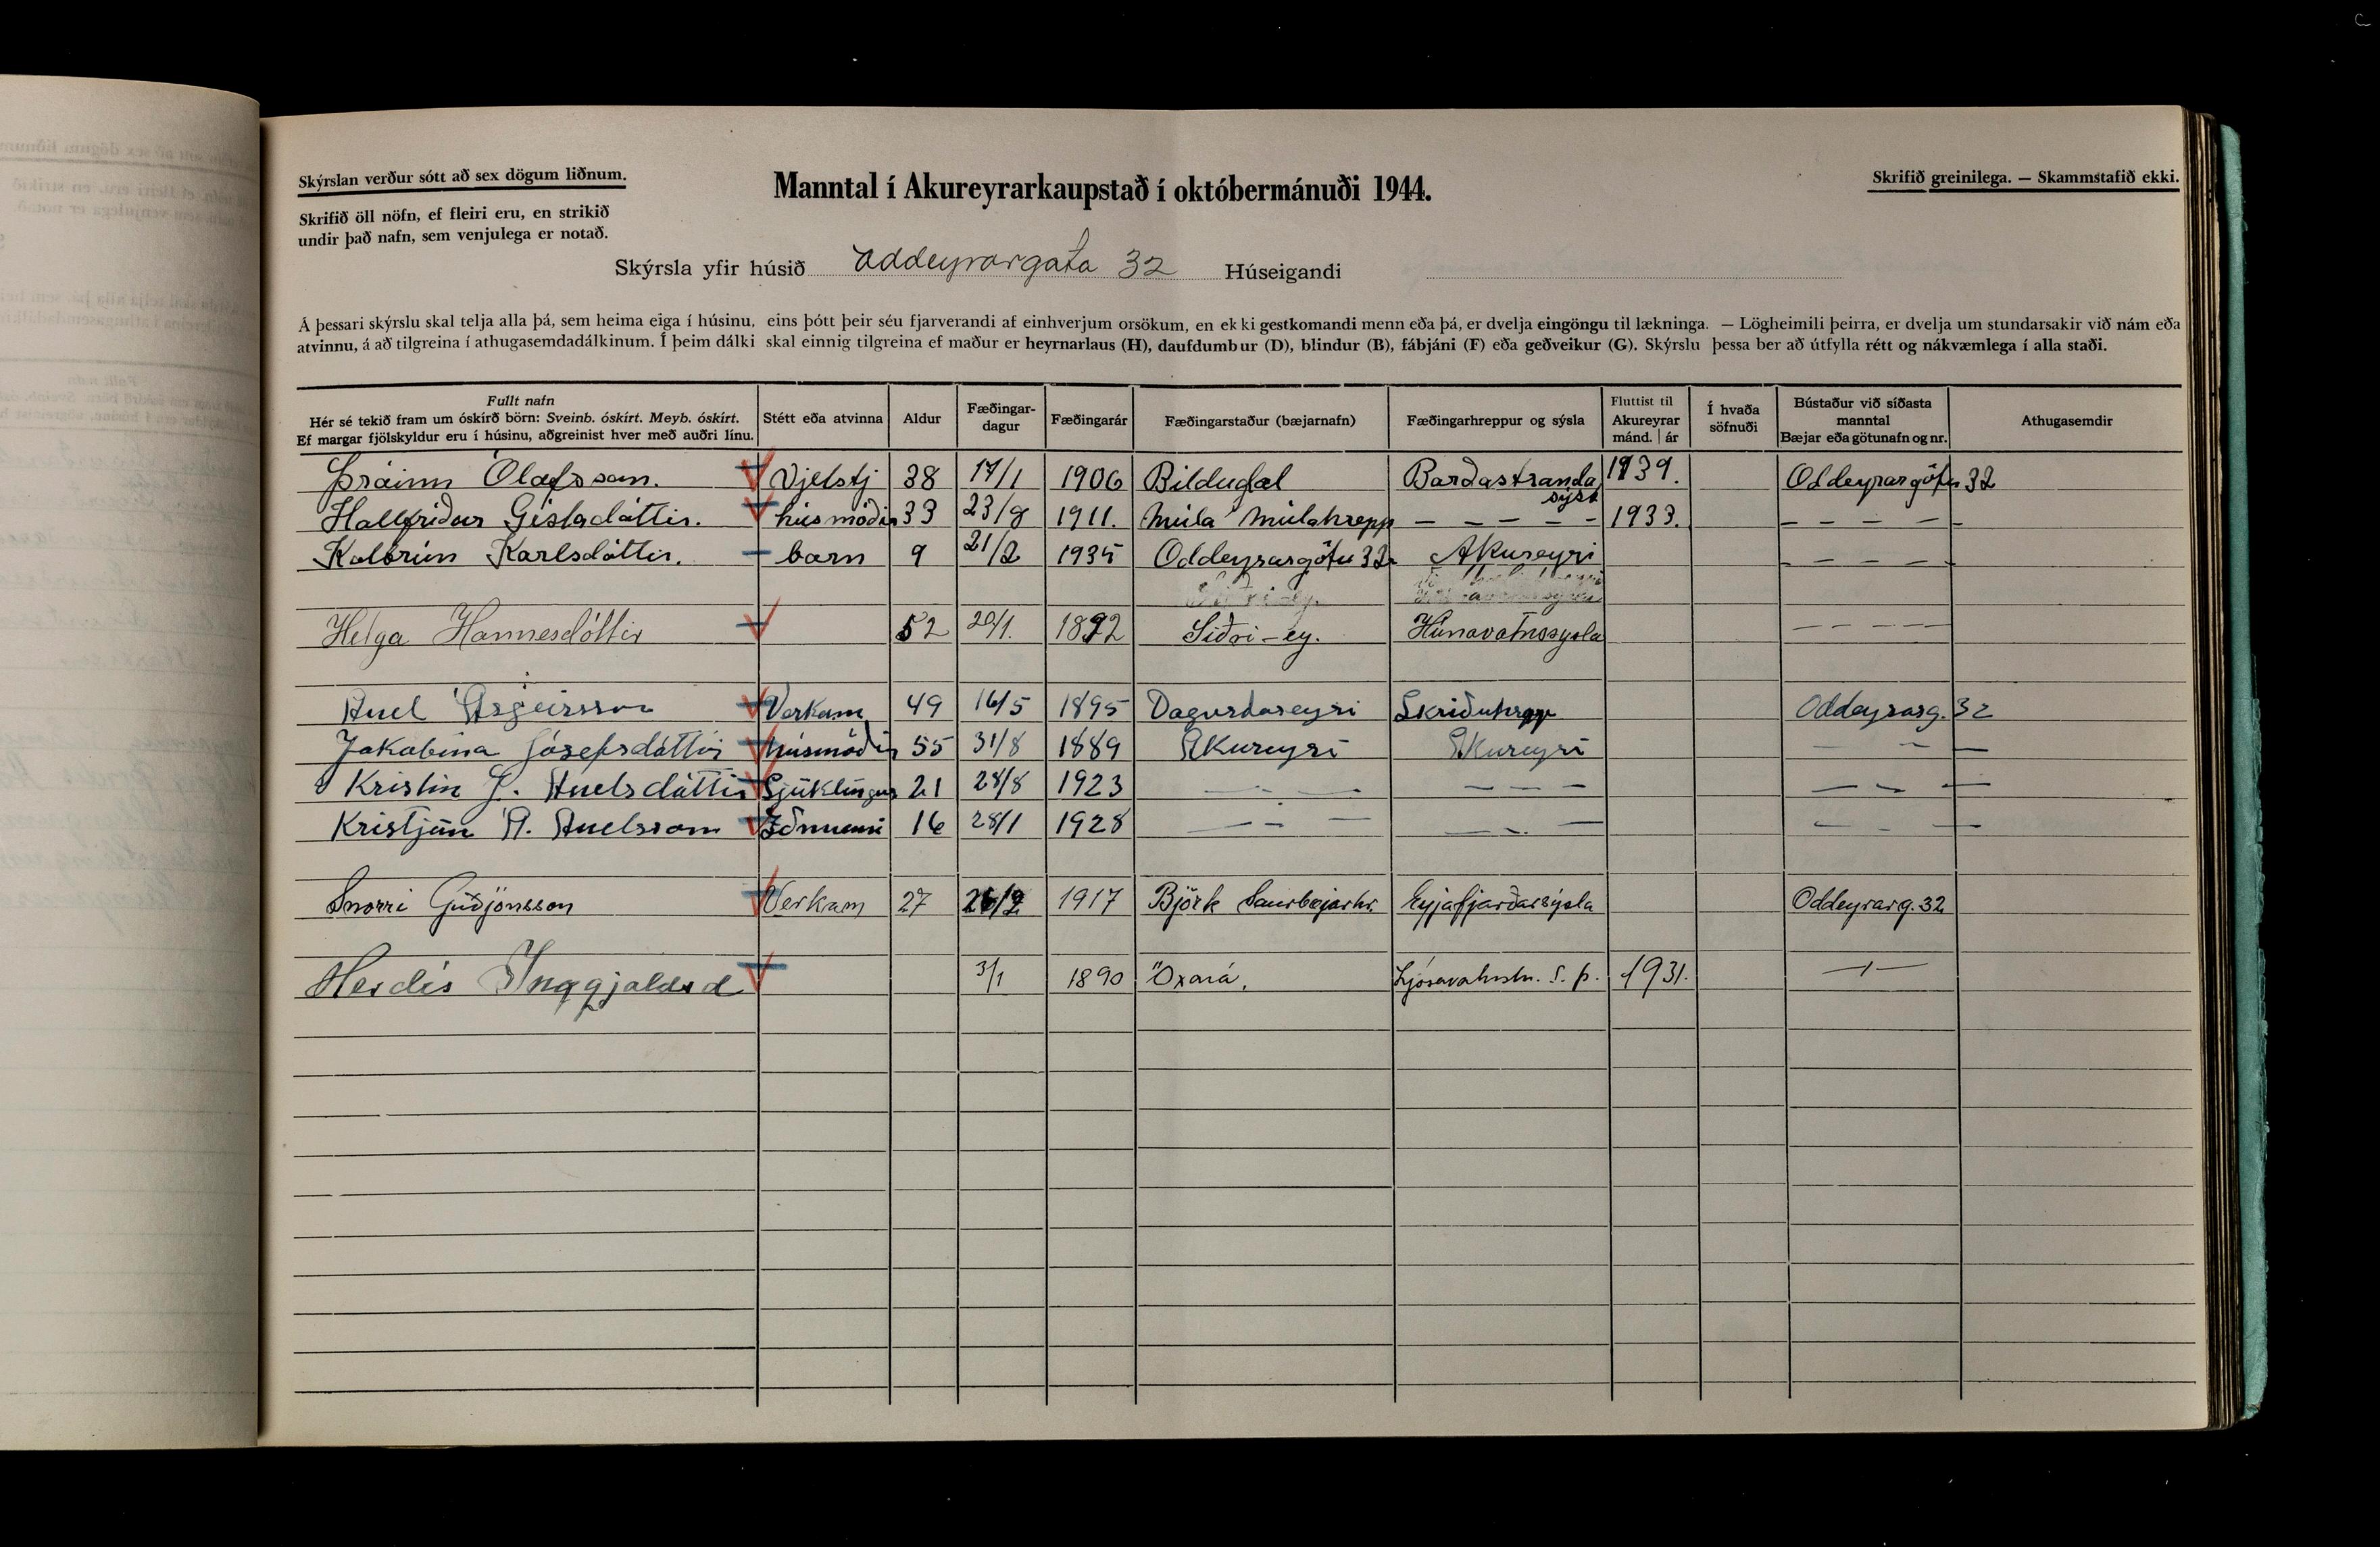 Skýrslan verður sótt að sex dögum liðnum.
Manntal í Akureyrarkaupstað í októbermánuði 1944.
Skrifið greinilega. — Skammstafið ekki.
Skrifið öll nöfn, ef fleiri eru, en strikið
undir það nafn, sem venjulega er notað.
Skýrsla yfir húsið Oddeyrargata 32 Húseigandi
Á þessari skýrslu skal telja alla þá, sem heima eiga í húsinu, eins þótt þeir séu fjarverandi af einhverjum orsökum, en ekki gestkomandi menn eða þá, er dvelja eingöngu til lækninga. — Lögheimili þeirra, er dvelja um stundarsakir við nám eða
atvinnu, á að tilgreina í athugasemdadálkinum. Í þeim dálki skal einnig tilgreina ef maður er heyrnarlaus (H), daufdumbur (D), blindur (B), fábjáni (F) eða geðveikur (G). Skýrslu þessa ber að útfylla rétt og nákvæmlega í alla staði.
Fullt nafn
Hér sé tekið fram um óskírð börn: Sveinb. óskírt. Meyb. óskírt.
Ef margar fjölskyldur eru í húsinu, aðgreinist hver með auðri línu.
Stétt eða atvinna
Aldur
Fæðingar-
dagur
Fæðingarár
Fæðingarstaður (bæjarnafn)
Fæðingarhreppur og sýsla
Fluttist til
Akureyrar
mánd. | ár
Í hvaða
söfnuði
Bústaður við síðasta
manntal
Bæjar eða götunafn og nr.
Athugasemdir
Þráinn Ólafsson. Vjelstj 38 17/1 1906 Bíldudal Barðastranda sýsl 1939. Oddeyrargötu 32
Hallfríður Gísladóttir. húsmóðir 33 23/8 1911. Múla Múlahrepp — — — — — 1933. — — — — —
Kolbrún Karlsdóttir. — barn 9 21/2 1935 Oddeyrargötu 32 Akureyri — — — —
Helga Hannesdóttir 52 20/1. 1892 Siðri-ey. Húnavatnssysla — — — —
Axel Ásgeirsson Verkam 49 16/5 1895 Dagverdareyri Skriðuhrepp Oddeyrarg. 32
Jakobína Jósefsdóttir húsmóðir 55 31/8 1889 Akureyri Akureyri — — —
Kristín J. Axelsdóttir Sjúklingur 21 28/8 1923 — — — — — — — — —
Kristján A. Axelsson Iðnnemi 16 28/1 1928 — — — — — — — — —
Snorri Guðjónsson Verkam 27 1917 Björk Saurbæjarhr. Eyjafjarðarsýsla Oddeyrarg. 32
Herdís Inggjaldsd 3/1 1890 Öxará. Ljósavahnshr. S. þ. 1931. —ı—